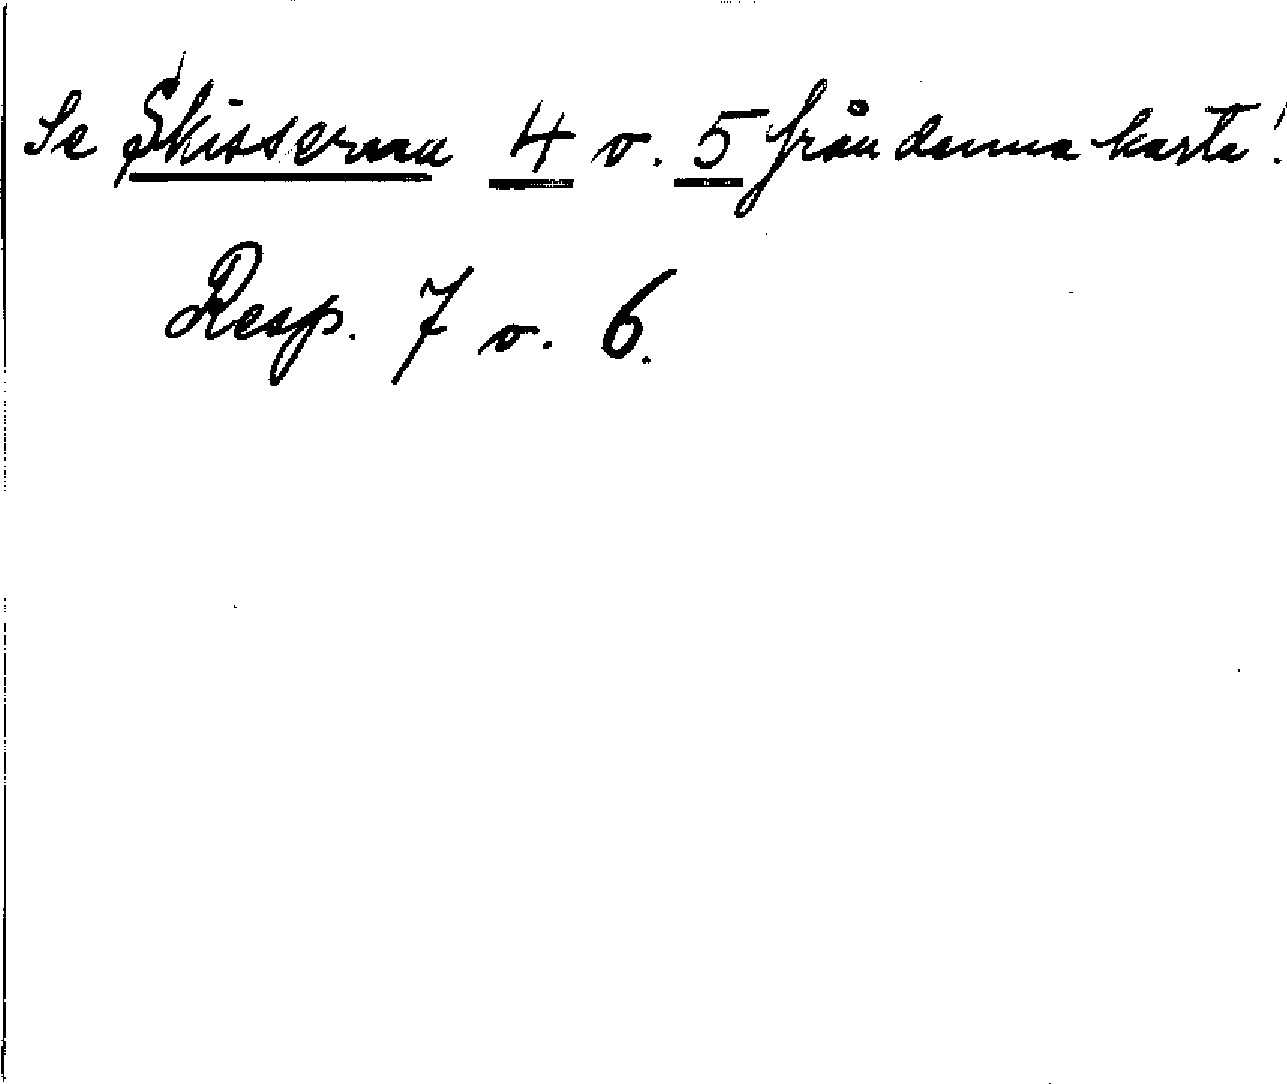 Se Skisserna 4 o. 5 från denna karta!
Resp. 7 o. 6.